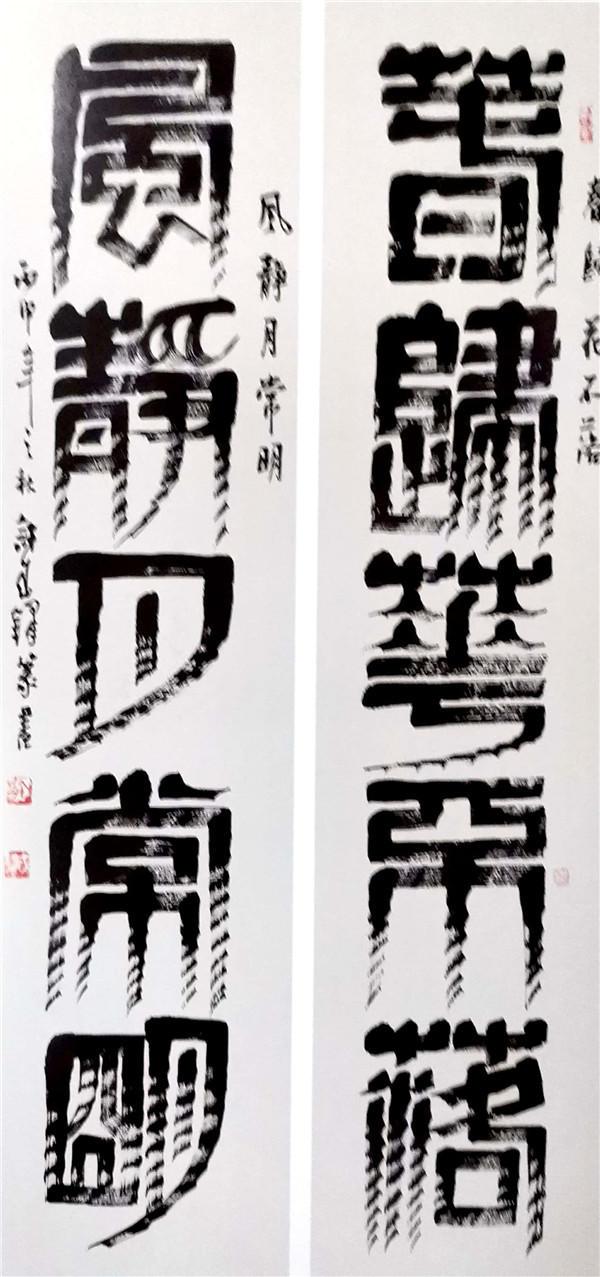 春歸華不落
春歸花不落
風靜月常明
風靜月常明
丙申年之秋